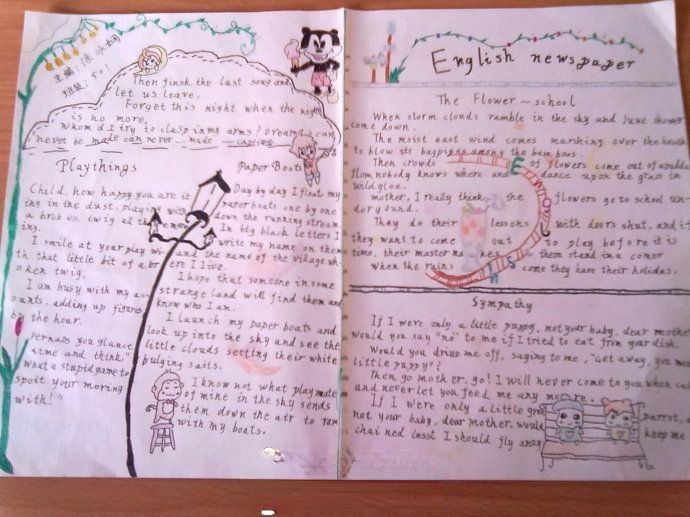 主编：徐冰姆
班级：501
Then finish the last song and
let us leave.
Forget this night when the night
is no more.
Whom do I try to clasp in my arms? Dreams can
never be made captive
Playthings
Child, how happy you are sitt
ing in the dust, playing with
a broken twig all the morn
ing.
I smile at your play wi
th that little bit of a br
oken twig.
I am busy with my acc
ounts, adding up figures
by the hour.
Perhaps you glance
at me and think,"
what a stupid game to
spoit your moring
with!"
Paper Boats
Day by day I float my
paper boats one by one
down the running stream
In big black letters I
write my name on them
and the name of the village wh
ere I live.
I hope that someone in some
strange land will find them and
know who I am.
I launch my paper boats and
look up into the sky and see the
little clouds setting their white
bulging sails.
I know not what playmate
of mine in the sky sends
them down the air to ran
with my boats.
English newspaper
The Flower-school
When storm clouds ramble in the sky and June shower
come down.
The moist east wind comes marching over the heath
to blow its bagpipes among the bamboos.
Then crowds of flowers come out of a sudde
from nobody knows where and dance upon the grass in
wild glee.
mother, I really think the flowers go to school un-
derground.
They do their lessons with doors shut, and if
they want to come out to play before it is
time, their master makes them stand in a cornor
when the rains come they have their holidas.
Sympathy
If I were only a little puppy, not your baby, dear mother
would you say "no" to me if I tried to eat from your dish.
Would you drive me off, saying to me, "Get away, you
little puppy??
Then go mother, go! I will never come to you when
and never let you feed me any more.
If I were only a little gree parrot,
not your baby, dear mother, would keep me
chained lest I should fly away